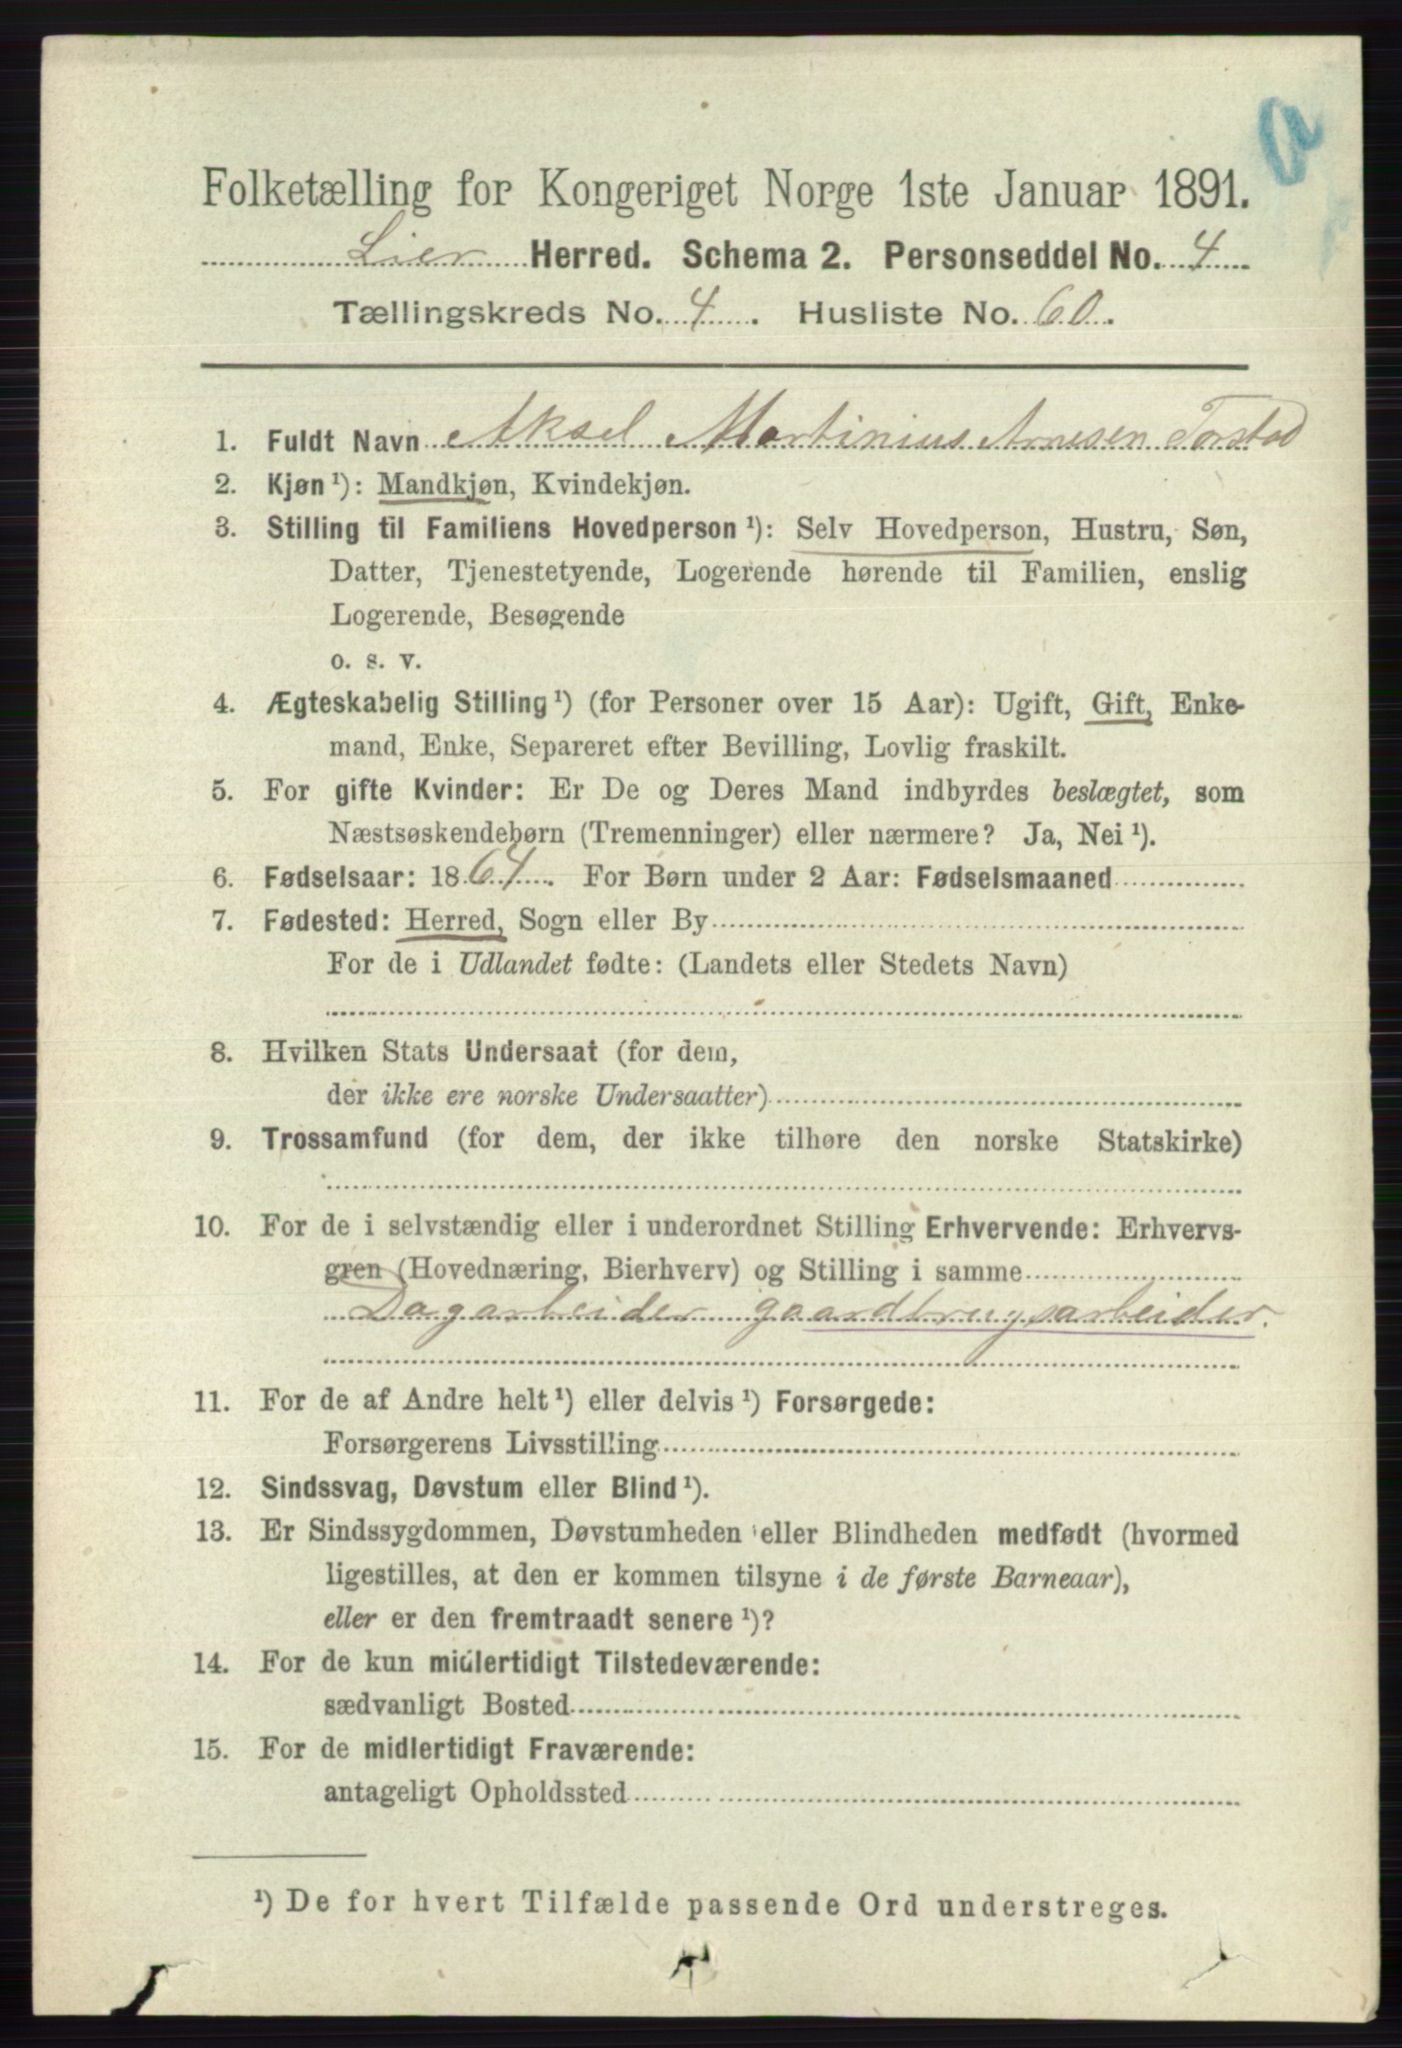 a
Folketælling for Kongeriget Norge 1ste Januar 1891.
Lier Herred. Schema 2. Personseddel No. 4
Tællingskreds No. 4. Husliste No. 60.
1. Fuldt Navn Aksel Martinius Arnesen Torstad
2. Kjøn ¹): Mandkjøn, Kvindekjøn.
3. Stilling til Familiens Hovedperson ¹): Selv Hovedperson, Hustru, Søn,
Datter, Tjenestetyende, Logerende hørende til Familien, enslig
Logerende, Besøgende
o. s. v.
4. Ægteskabelig Stilling ¹) (for Personer over 15 Aar): Ugift, Gift, Enke-
mand, Enke, Separeret efter Bevilling, Lovlig fraskilt.
5. For gifte Kvinder: Er De og Deres Mand indbyrdes beslægtet, som
Næstsøskendebørn (Tremenninger) eller nærmere? Ja, Nei ¹).
6. Fødselsaar: 1864. For Børn under 2 Aar: Fødselsmaaned
7. Fødested: Herred, Sogn eller By
For de i Udlandet fødte: (Landets eller Stedets Navn)
8. Hvilken Stats Undersaat (for dem,
der ikke ere norske Undersaatter)
9. Trossamfund (for dem, der ikke tilhøre den norske Statskirke)
10. For de i selvstændig eller i underordnet Stilling Erhvervende: Erhvervs-
gren (Hovednæring, Bierhverv) og Stilling i samme
Dagarbeider gaardbrugsarbeider.
11. For de af Andre helt ¹) eller delvis ¹) Forsørgede:
Forsørgerens Livsstilling
12. Sindssvag, Døvstum eller Blind ¹).
13. Er Sindssygdommen, Døvstumheden eller Blindheden medfødt (hvormed
ligestilles, at den er kommen tilsyne i de første Barneaar),
eller er den fremtraadt senere ¹)?
14. For de kun midlertidigt Tilstedeværende:
sædvanligt Bosted
15. For de midlertidigt Fraværende:
antageligt Opholdssted
¹) De for hvert Tilfælde passende Ord understreges.